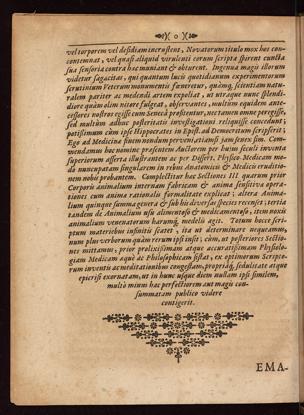 ( o )
vel torporem vel desidiam incrustens, Novatorum titulo mox hos con-
contemnat, vel quasi aliquid virulenti eorum scripta spirent cuncta
sua sensoria contra hæc muniant & obturent. Ingenua magis illorum
videtur sagacitas, qui quantum lucis quotidianum experimentorum
scrutinium Veterum monumentis fœneretur, quamq; scientiam natu-
ralem pariter ac medendi artem expoliat, at utraque nunc splendi-
diore quàm olim nitore fulgeat, observantes, multùm equidem ante-
cessores nostros egisse cum Seneca profitentur, nec tamen omne peregisse,
sed multùm adhuc posteritatis investigationi reliquisse concedunt;
potissimùm cùm ipse Hippocrates in Epist. ad Democritum scripserit;
Ego ad Medicinæ finem nondum perveni etiamsi jam senex sim. Com-
mendamus hoc nomine præsentem Auctorem per hujus seculi inventa
superiorum asserta illustrantem ac per Dissert. Physico-Medicam mo-
do nuncupatam singularem in rebus Anatomicis & Medicis eruditio-
nem nobis probantem. Complectitur hæc Sectiones III quarum prior
Corporis animalium internam fabricam & animæ sensitivæ opera-
tiones cum anima rationalis formalitate explicat; altera Anima-
lium quinque summa genera & sub his diversas species recenset; tertia
tandem de Animalium usu alimentoso & medicamentoso, item noxis
animalium venenatorum harumq; medelis agit. Totum hocce scri-
ptum materiebus infinitis scatet, ita ut determinare nequeamus,
num plus verborum quàm rerum ipsi insit; cùm, at posteriores Sectio-
nes mittamus; prior prolixissimam atque accuratissimam Physiolo-
giam Medicam æquè ac Philosophicam sistat, ex optimorum Scripto-
rum inventis ac meditationibus congestam, propriáq; sedulitate atque
epicrisi exornatam, ut in hunc usque diem nullam ipsi similem,
multò minùs hac perfectiorem aut magis con-
summatam publico videre
contigerit.
EMA-